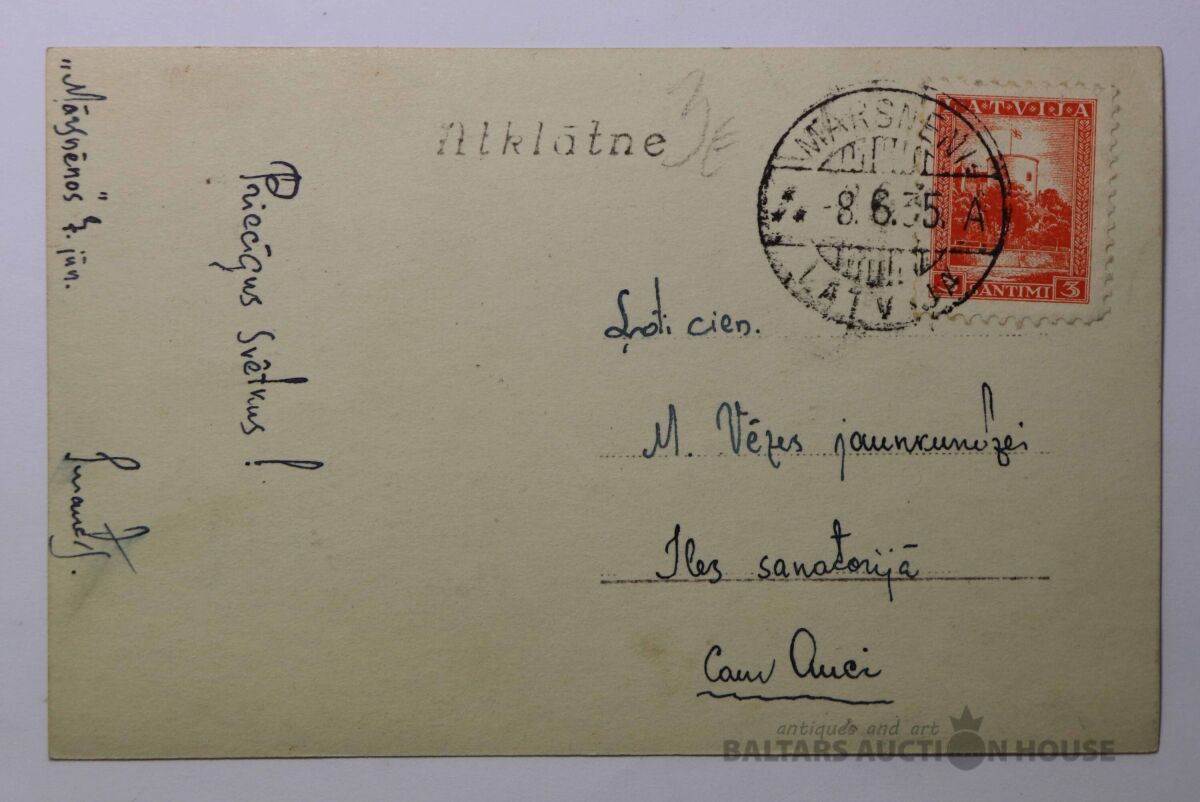 „Mārsnēnos" 7. jūn.
Priecīgus svētkus!
Atklātne
3 €
MĀRSNĒNI
-8.6.35. A
LATVIJA
LATVIJA
3 SANTIMI 3
Ļoti cien.
M. Vēzes jaunkundzei
Iles sanatorijā
Caur Auci
antiques and art
BALTARS AUCTION HOUSE